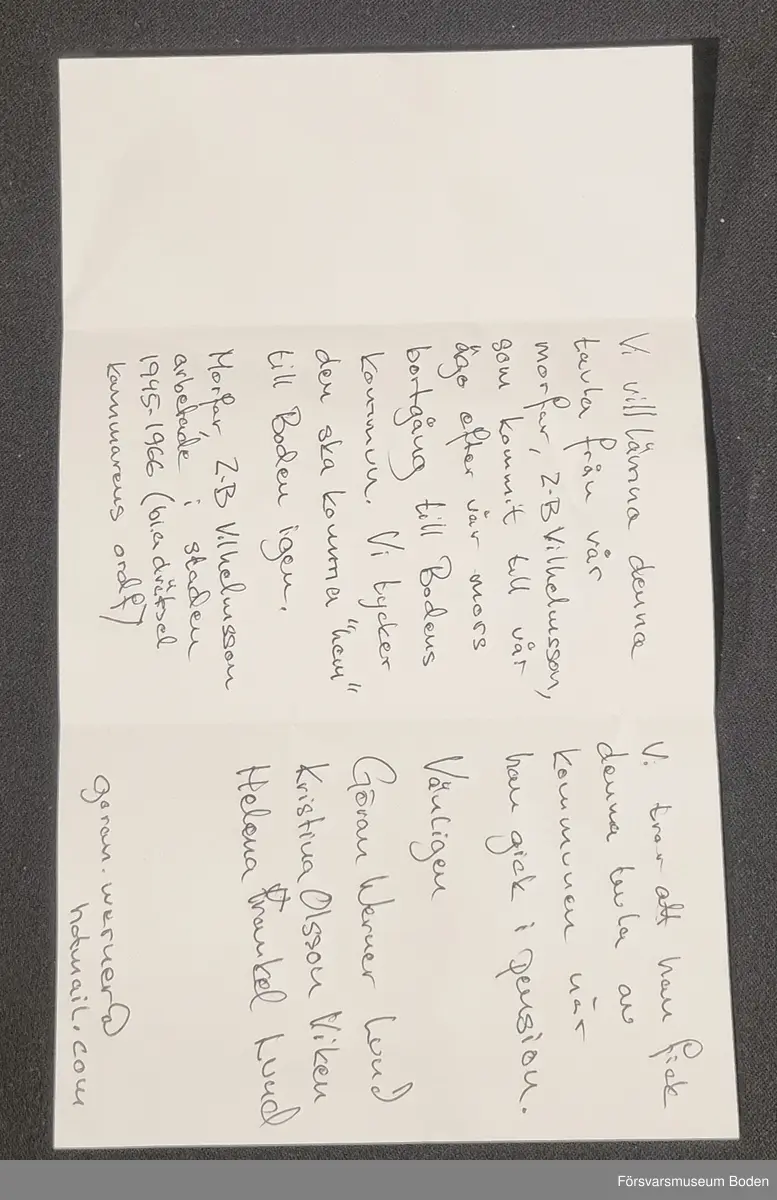 Vi vill lämna denna
tavla från vår
morfar, Z-B Vilhelmsson,
som kommit till vår
ägo efter vår mors
bortgång till Bodens
kommun. Vi tycker
den ska komma "hem"
till Boden igen.
Morfar Z-B Vilhelmsson
arbetade i staden
1945-1966 (bl.a drätsel
kammarens ordf)
Vi tror att han fick
denna tavla av
kommunen när
han gick i pension.
Vänligen
Göran Werner Lund
Kristina Olsson Viken
Helena Frankel Lund
goran.werner@
hotmail.com
Försvarsmuseum Boden